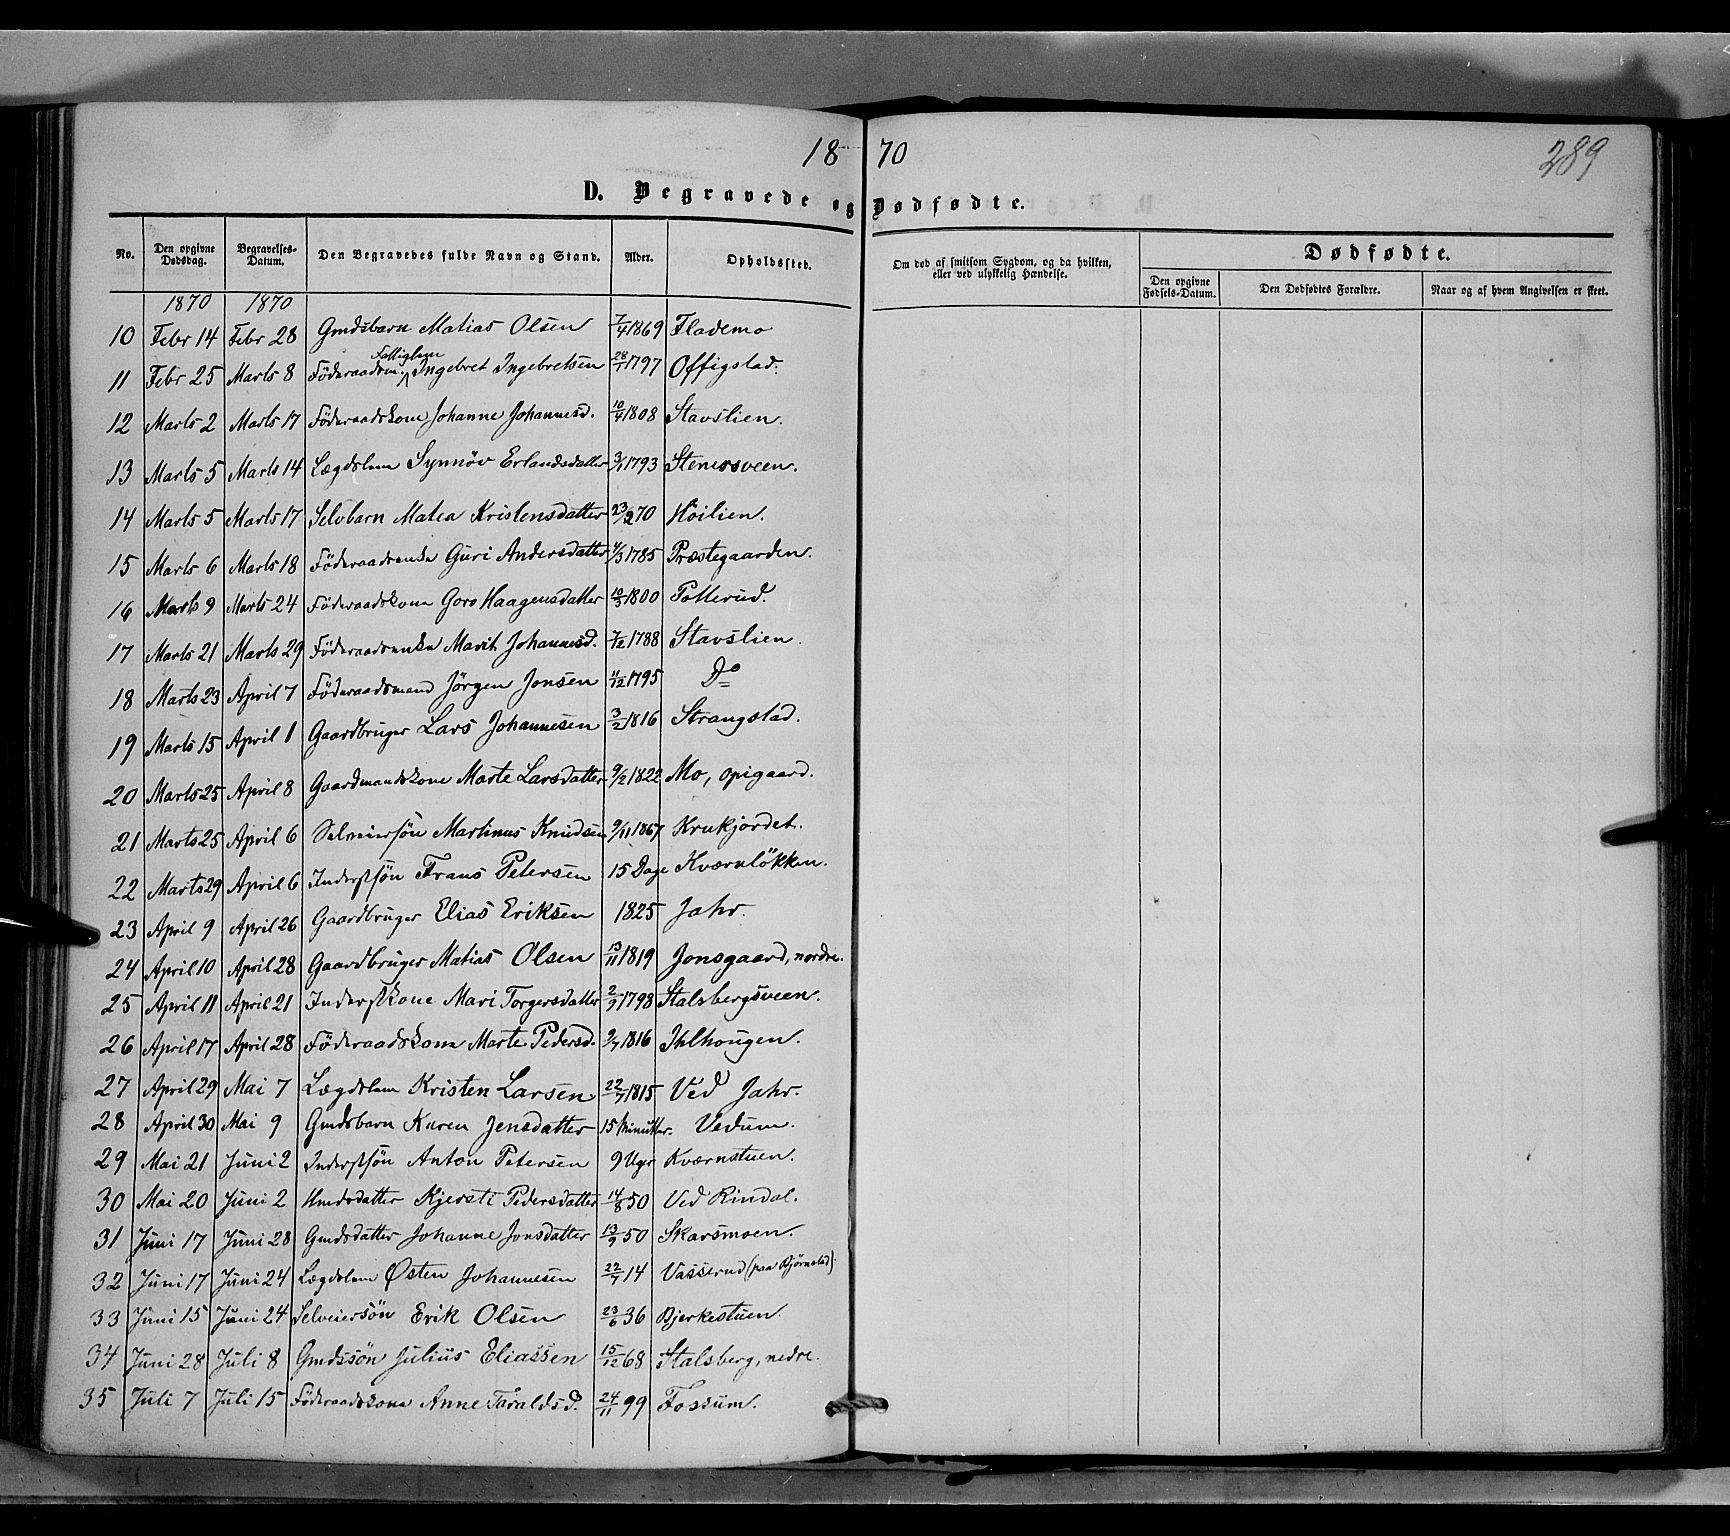 18 70
289
D. Begravede og Dødfødte.
No. Den opgivne Dødsdag. Begravelses-Datum. Den Begravedes fulde Navn og Stand. Alder. Opholdssted. Om død af smitsom Sygdom, og da hvilken, eller ved ulykkelig Hændelse. Dødfødte.
Den opgivne Fødsels-Datum. Den Dødfødtes Forældre. Naar og af hvem Angivelsen er skeet.
1870 1870
10 Febr 14 Febr 28 Gmdsbarn Matias Olsen 7/4 1869 Flademo
Fattiglem
11 Febr 25 Marts 8 Föderaadsm. Ingebret Ingebretsen 28/1 1797 Offigstad.
12 Marts 2 Marts 17 Föderaadskone Johanne Johannesd. 10/4 1808 Stavslien.
13 Marts 5 Marts 14 Lægdslem Synnöv Erlandsdatter 3/1 1793 Stenersveen.
14 Marts 5 Marts 17 Selvbarn Matea Kristensdatter 23/2 70 Höilien.
15 Marts 6 Marts 18 Föderaadsenke Guri Andersdatter 4/3 1785 Præstegaarden.
16 Marts 9 Marts 24 Föderaadskone Goro Haagensdatter 10/3 1800 Potterud.
17 Marts 21 Marts 29 Föderaadsenke Marit Johannesd. 7/2 1788 Stavslien.
18 Marts 23 April 7 Föderaadsmand Jörgen Jonsen 11/12 1795 Do
19 Marts 15 April 1 Gaardbruger Lars Johannesen 3/2 1816 Strangstad.
20 Marts 25 April 8 Gaardmandskone Marte Larsdatter 9/2 1822 Mo, opigaard.
21 Marts 25 April 6 Selveiersön Martinus Knudsen 9/11 1867 Krukjordet.
22 Marts 29 April 6 Inderstsön Frans Petersen 15 Dage Kværnlökken.
23 April 9 April 26 Gaardbruger Elias Eriksen 1825 Jahr.
24 April 10 April 28 Gaardbruger Matias Olsen 13/11 1819 Jonsgaard, nordre.
25 April 11 April 21 Inderstkone Mari Torgersdatter 2/9 1798 Stalsbergsveen.
26 April 17 April 28 Föderaadskone Marte Pedersd. 9/7 1816 Ihlhougen.
27 April 29 Mai 7 Lægdslem Kristen Larsen 22/7 1815 Ved Jahr.
28 April 30 Mai 9 Gmdsbarn Karen Jensdatter 15 Minutter. Vedum.
29 Mai 21 Juni 2 Inderstsön Anton Petersen 9 Uger Kværnstuen.
30 Mai 20 Juni 2 Hmdsdatter Kjersti Pedersdatter 14/8 50 Ved Rindal.
31 Juni 17 Juni 28 Gmdsdatter Johanne Jonsdatter 13/9 50 Skarsmoen.
32 Juni 17 Juni 24 Lægdslem Østen Johannesen 22/7 14 Vasserud (paa Bjørnstad).
33 Juni 15 Juni 24 Selveiersön Erik Olsen 23/6 36 Bjerkestuen.
34 Juni 28 Juli 8 Gmdssön Julius Eliassen 15/12 68 Stalsberg, nedre.
35 Juli 7 Juli 15 Föderaadskone Anne Taraldsd. 24/11 99 Fossum.